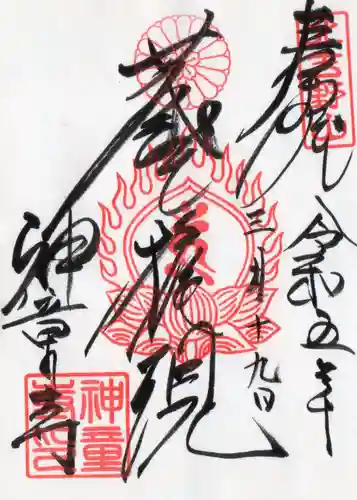 奉拝
令和五年
三月十九日
蔵王権現
神童寺
神童